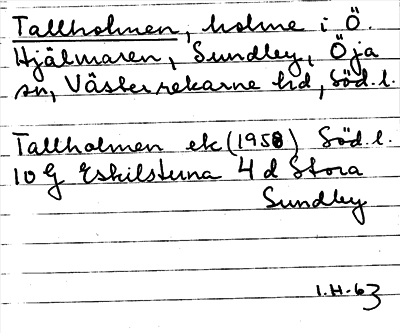 Tallholmen, holme i Ö.
Hjälmaren, Sundby, Öja
sn, Västerrekarne hd, Söd. l.
Tallholmen ek (1958) Söd. l.
10 G Eskilstuna 4 d Stora
Sundby
I.H-63